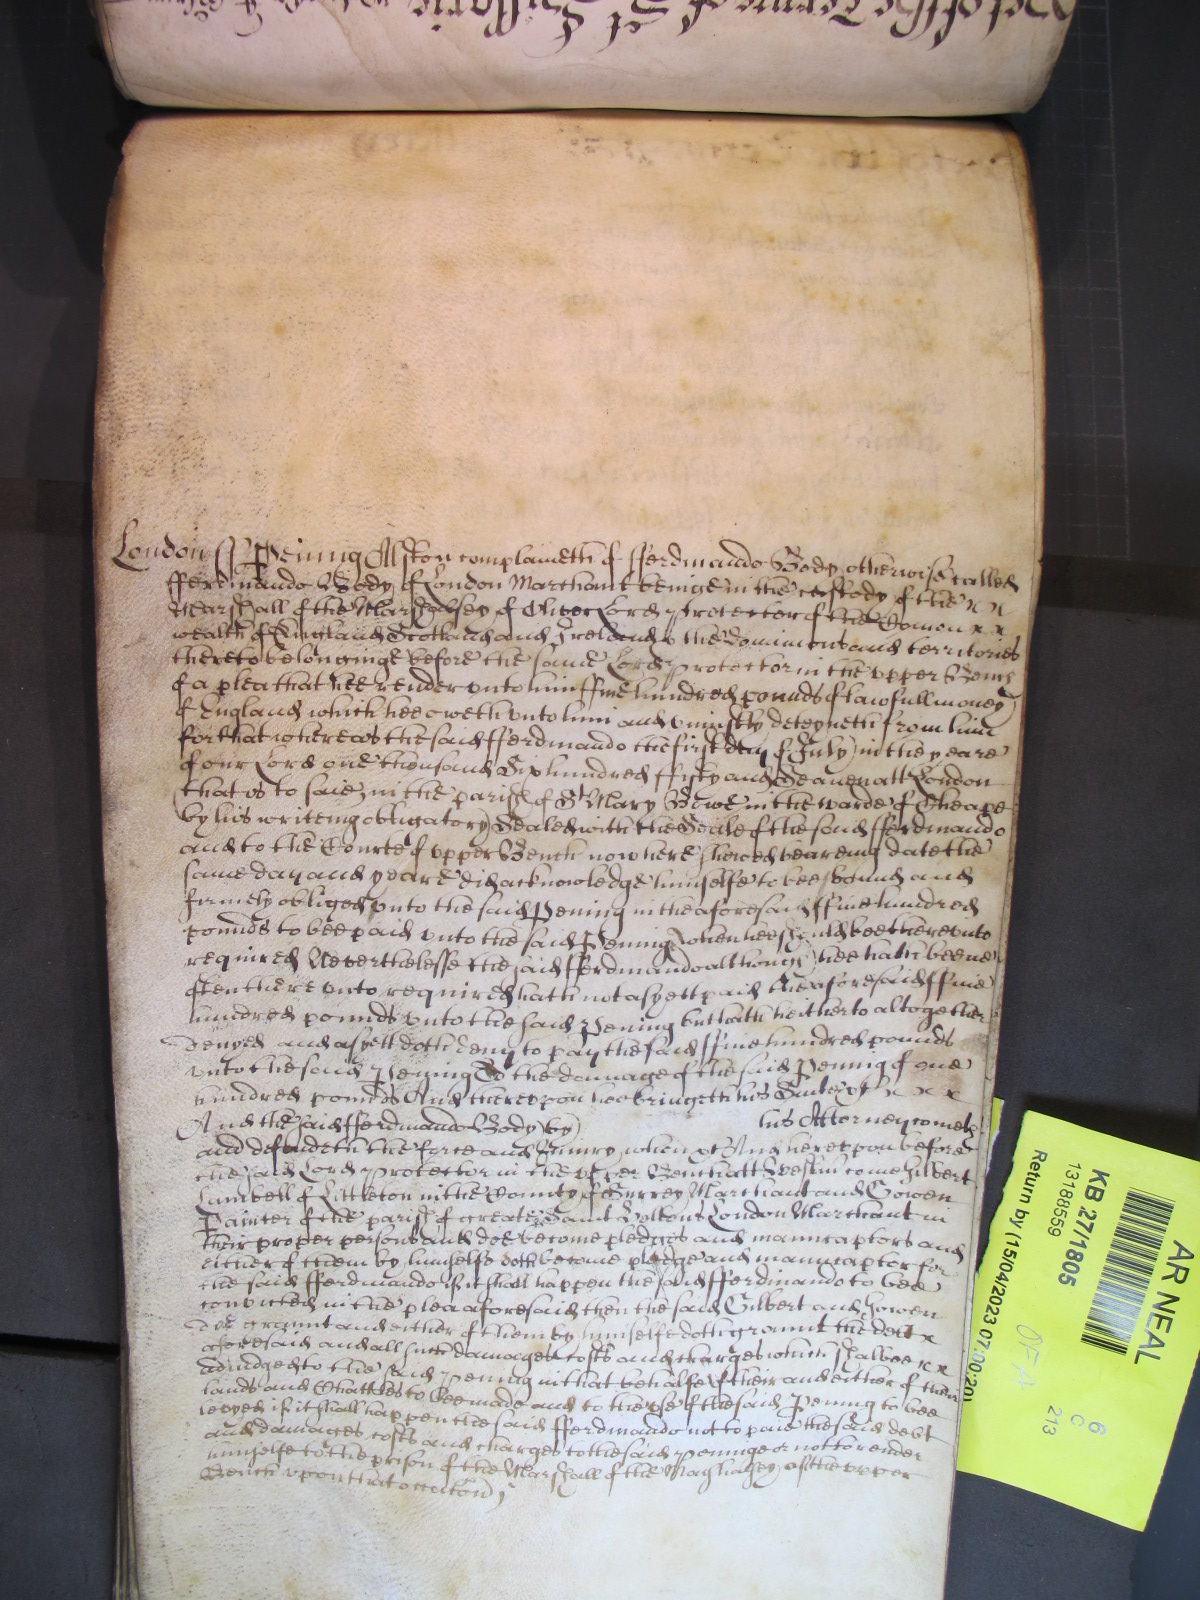 London ss Pening Alston complaineth of fferdinando Body otherwise called
fferdinando Body of London Marchant beinge in the custody of the x x
Marshall of the Marshalsey of Oliver Lord Protector of the Comon x x
wealth of England Scotland and Ireland & the Dominions and territories
thereto belonginge before the same Lord Protector in the vpper Bench
of a plea that hee render vnto him ffive hundred pounds of lawfull money
of England which hee oweth vnto him and vniustly deteyneth from him
for that whereas the said fferdinando the first day of July in the yeare
of our Lord one thousand Six hundred ffifty and Seaven att London
that is to saie in the parish of St Mary Bowe in the warde of Cheape
by his writeing obligatory Sealed with the Seale of the said fferdinando
and to the Courte of vpper Bench now here shewed beareing date the
same day and yeare did acknowledge himselfe to bee bound and
firmely obliged vnto the said Pening in the aforesaid ffive hundred
pounds to bee paid vnto the said Pening when hee should bee therevnto
required Neverthelesse the said fferdinando although hee hath beene
often therevnto required hath not as yett paid the aforesaid ffive
hundred pounds vnto the said Pening but hath hitherto altogether
denyed and as yett doth deny to pay the said ffive hundred pounds
vnto the said Pening To the damage of the said Pening of one
hundred pounds And therevpon hee bringeth his Suite &c x x x
And the said fferdinando Body by his Attorney cometh
and defendeth the force and Iniury when &c And herevpon before
the said Lord Protector in the vpper Bench att Westm come Gilbert
Lambell of Littleton in the County of Surrey Marchant and Gowen
Painter of the parish of greate Saint Hellens London Marchant in
their proper persons and doe become pledges and manucaptors and
either of them by himselfe doth become pledge and manucaptor for
the said fferdinando That if it shall happen the said fferdinando to bee
convicted in the plea aforesaid then the said Gilbert and Gowen
doe graunt and either of them by himselfe doth graunt the debt x
aforesaid and all such damages costs and charges which shalbee x x
adiudged to the said Pening in that behalfe of their and either of their
lands and Chattles to bee made and to the vse of the said Pening to bee
levyed if it shall happen the said fferdinando not to paie the said debt
and damages costs and charges to the said Peninge or not to render
himselfe to the prison of the Marshall of the Marshalsey of the vpper
Bench vpon that occasion
AR NEAL
KB 27/1805
13188559
Return by (15/04/2023 07:00:20)
6
C
213